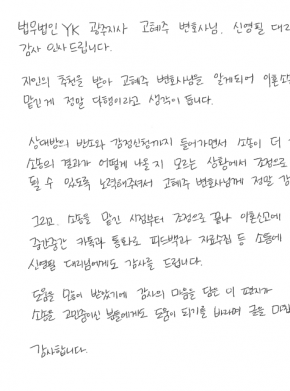 법무법인 YK 광주지사 고혜주 변호사님, 신영필 대리
감사 인사 드립니다.
지인의 추천을 받아 고혜주 변호사님을 알게되어 이혼소
맡긴게 정말 다행이라고 생각이 듭니다.
상대방의 반소와 감정신청까지 들어가면서 소송이 더
소송의 결과가 어떻게 나올지 모르는 상황에서 조정으로
될 수 있도록 노력해주셔서 고혜주 변호사님께 정말 감
그리고, 소송을 맡긴 시점부터 조정으로 끝나 이혼신고에
중간중간 카톡과 통화로 피드백과 자료수집 등 소통에
신영필 대리님에게도 감사를 드립니다.
도움을 많이 받았기에 감사의 마음을 담은 이 편지가
소송을 고민중이신 분들에게도 도움이 되기를 바라며 글을 마
감사합니다.